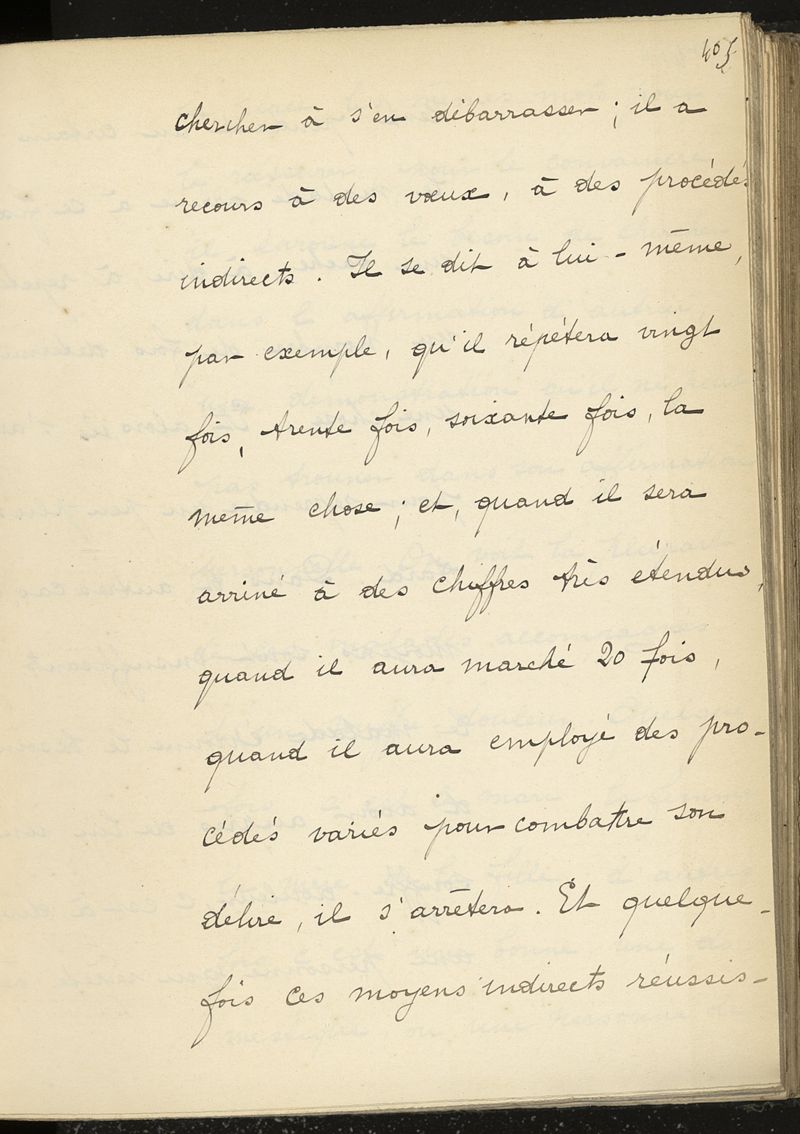 405
chercher à s'en débarrasser ; il a
recours à des vœux, à des procédés
indirects. Il se dit à lui-même,
par exemple, qu'il répétera vingt
fois, trente fois, soixante fois, la
même chose ; et, quand il sera
arrivé à des chiffres très étendus,
quand il aura marché 20 fois,
quand il aura employé des pro-
cédés variés pour combattre son
délire, il s'arrêtera. Et quelque-
fois ces moyens indirects réussis-